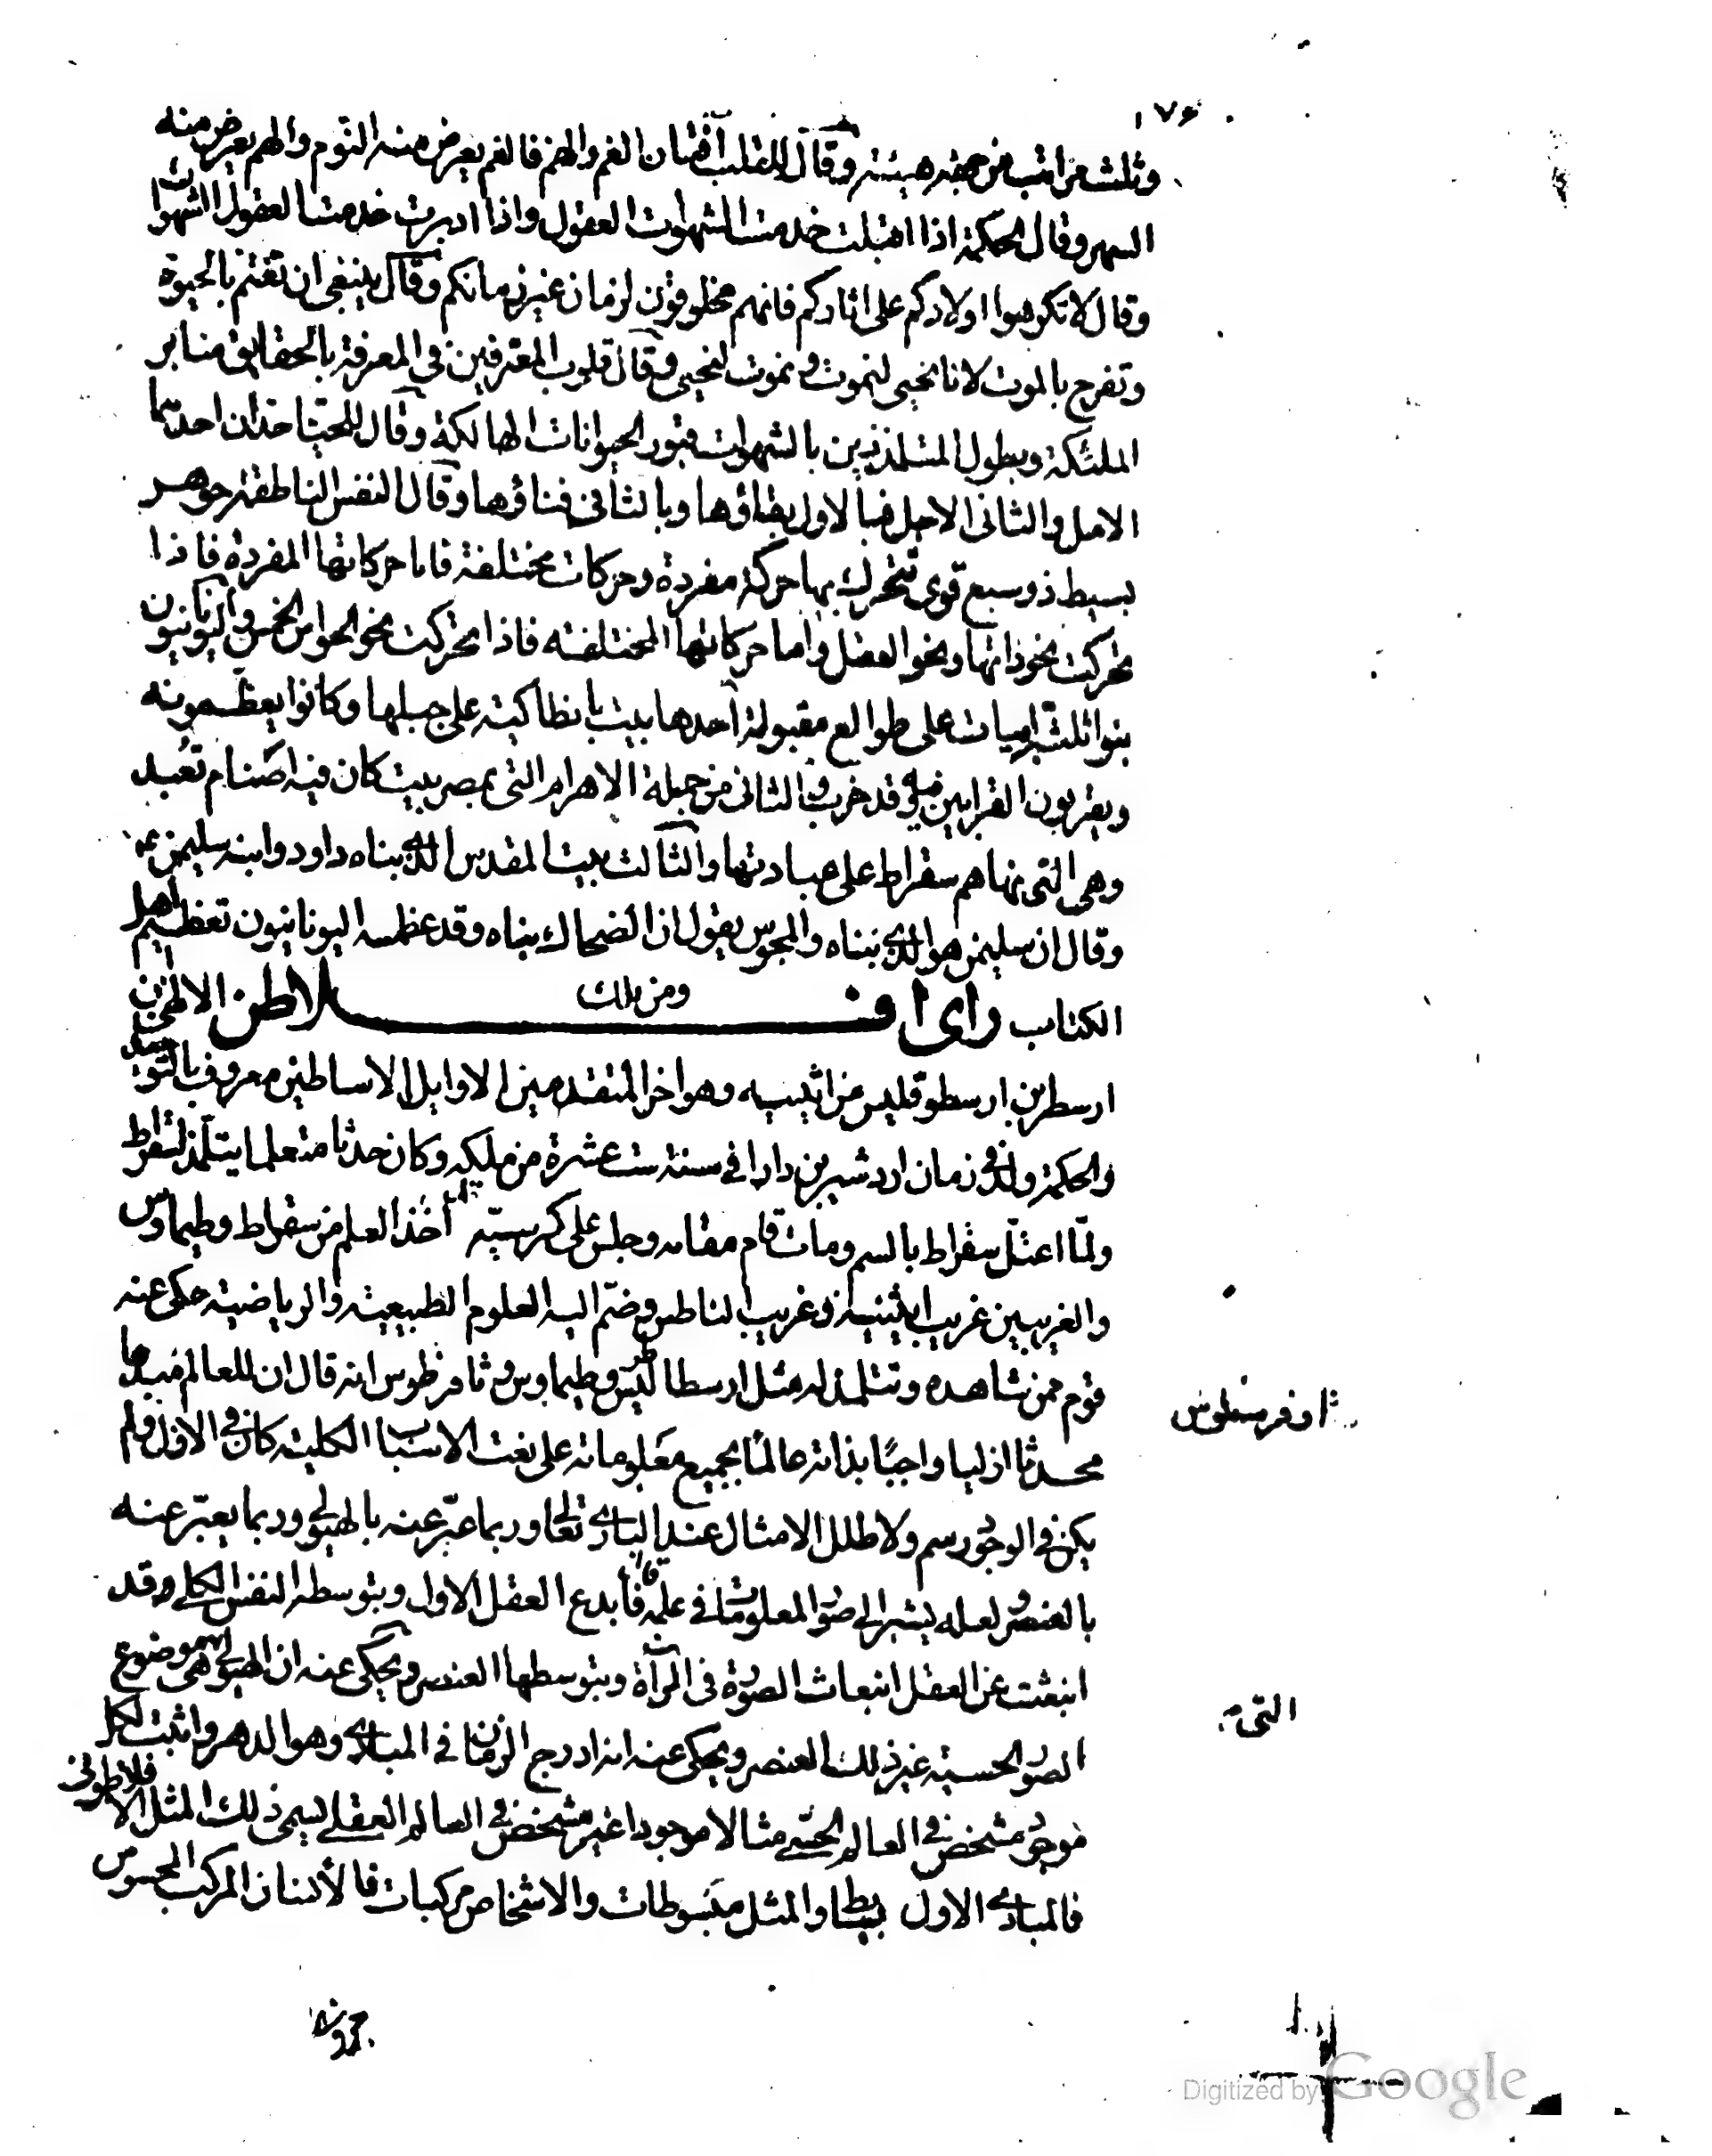 ١٧٤
وثلث مراتب من جهة هيئته وقال للقلب آفتان الغم والهم فالغم يعرض منه النوم والهم يعرض منه
السهر وقال الحكمة اذا اقبلت خدمت الشهوات العقول واذا ادبرت خدمت العقول الشهوات
وقال لا تكرهوا اولادكم على اثاركم فانهم مخلوقون لزمان غير زمانكم وقال ينبغى ان تغتم بالحيوة
وتفرح بالموت لانا نحيى لنموت ونموت لنحيى وقال قلوب المغترفين فى المعرفة بالحقايق منابر
الملئكة وبطون المتلذذين بالشهوات قبور الحيوانات الهالكة وقال للحيوة حدان احدهما
الامل والثانى الاجل فبالاول بقاؤها وبالثانى فناؤها وقال النفس الناطقة جوهر
بسيط ذو سبع قوى تتحرك بها حركة مفردة وحركات مختلفة فاما حركاتها المفردة فاذا
تحركت نحو ذاتها ونحو العقل واما حركاتها المختلفة فاذا تحركت نحو الحواس الخمس واليونانيون
بنوا ثلثة ابيات على طوالع مقبولة احدها بيت بانطاكية على جبلها وكانوا يعظمونه
ويقربون القرابين فيه وقد خرب والثانى من جملة الاهرام التى بمصر بيت كان فيه اصنام تعبد
وهى التى نهاهم سقراط على عبادتها والثالث بيت المقدس الذى بناه داود وابنه سليمن ع
وقال ان سليمن هو الذى بناه والمجوس يقول ان الضحاك بناه وقد عظمه اليونانيون تعظيم اهل
الكتاب ومن ذلك راى افلاطن الالهى بن
ارسطن بن ارسطوقليس من اثينيه وهو اخر المتقدمين الاوايل الاساطين معروف بالتوحيد
والحكمة ولد فى زمان اردشير بن دارا فى سنة ست عشرة من ملكه وكان حدثا متعلما يتلمذ لسقراط
ولما اعتل سقراط بالسم ومات قام مقامه وجلس على كرسيه اخذ العلم من سقراط وطيماوس
والغريبين غريب اثينية وغريب الناطس وضم اليه العلوم الطبيعية والرياضية حكى عنه
قوم ممن شاهده وتتلمذ له مثل ارسطاطاليس وطيماوس وثافرطوس انه قال ان للعالم مبدعا
ثاوفرسطوس
محدثا ازليا واجبا بذاته عالما بجميع معلوماته على نعت الاسباب الكلية كان فى الازل ولم
يكن فى الوجود رسم ولا طلل الامثال عند البارى تعالى وربما عبر عنه بالهيولى وربما يعبر عنه
بالعنصر ولعله يشير الى صور المعلومات فى علمه قال فابدع العقل الاول وبتوسطه النفس الكلى وقد
انبعثت عن العقل انبعاث الصورة فى المرآة وبتوسطها العنصر ويحكى عنه ان الهيولى التى هى موضوع
التى
الصور الحسية غير ذلك العنصر ويحكى عنه انه ادرج الزمان فى المبادى وهو الدهر واثبت لكل
موجود مشخص فى العالم الحسى مثالا موجودا غير مشخص فى العالم العقلى يسمى ذلك المثل الافلاطونى
فالمبادى الاول بسايط والمثل مبسوطات والاشخاص مركبات فالانسان المركب المحسوس
Digitized by Google